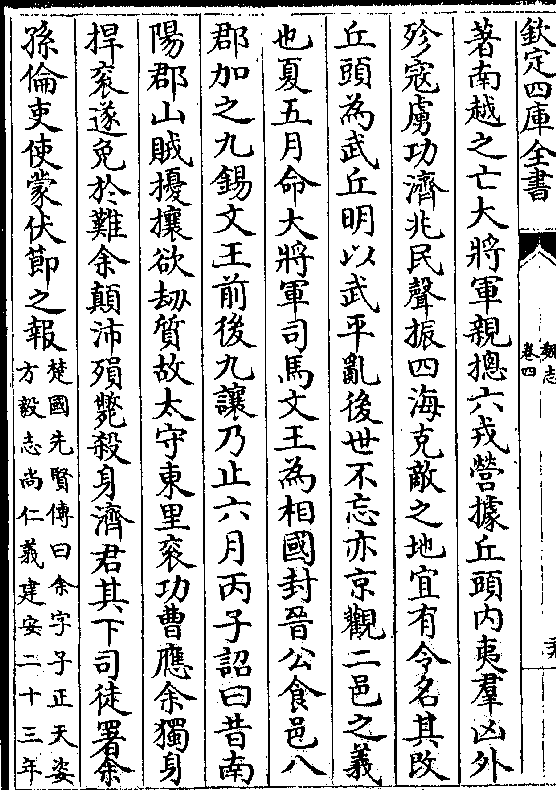 著南越之亡大將軍親摠六戎營據丘頭內夷羣凶外
殄寇虜功濟兆民聲振四海克敵之地宜有令名其改
丘頭為武丘明以武平亂後世不忘亦京觀二邑之義
也夏五月命大將軍司馬文王為相國封晉公食邑八
郡加之九錫文王前後九讓乃止六月丙子詔曰昔南
陽郡山賊擾攘欲刼質故太守東里袞功曹應余獨身
捍袞遂免於難余顛沛殞斃殺身濟君其下司徒署余
孫倫吏使蒙伏節之報
楚國先賢傳曰余字子正天姿
方毅志尚仁義建安二十三年
欽定四庫全書
魏志
卷四